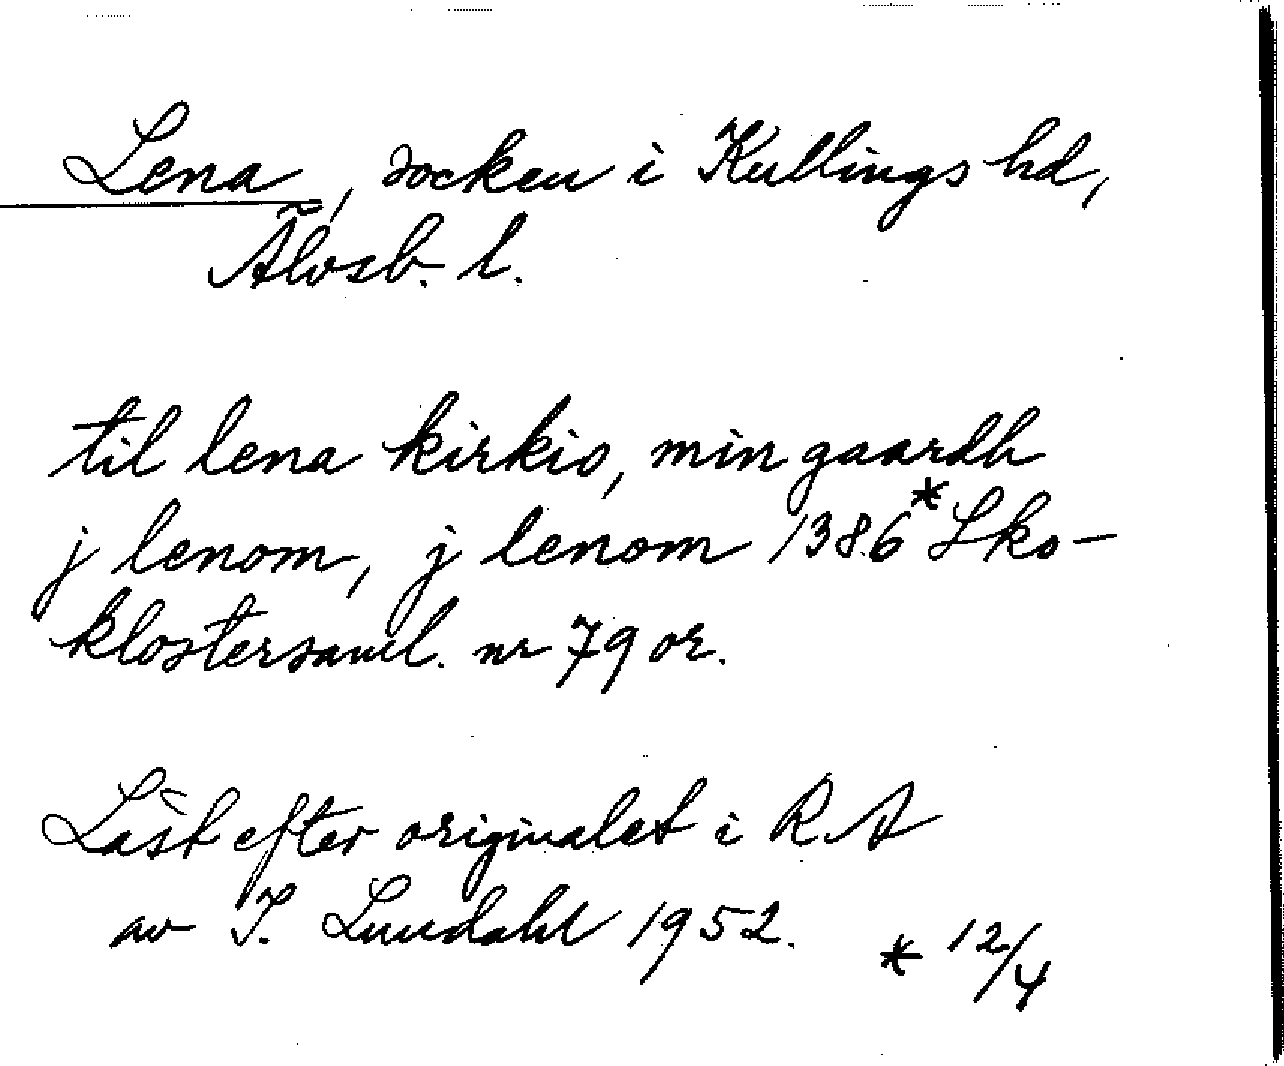 Lena, socken i Kullings hd,
Älvsb. l.
til lena kirkio, min gaardh
j lenom, j lenom 1386* Sko-
klostersaml. nr 79 or.
Läst efter originalet i RA
av I. Lundahl 1952. * 12/4